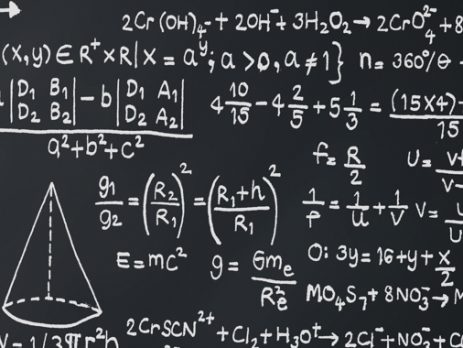 2Cr(OH)₄⁻ + 2OH⁻ + 3H₂O₂ → 2CrO₄²⁻ + 8
(x,y) ∈ R⁺ × R | x = aʸ; a > 0, a ≠ 1} n = 360°/θ -
|D₁ B₁| - b |D₁ A₁|
|D₂ B₂| |D₂ A₂|
a² + b² + c²
4 10/15 - 4 2/5 + 5 1/3 = (15×4)+ / 15
f = R/2
g₁/g₂ = (R₂/R₁)² = (R₁+h/R₁)²
1/f = 1/u + 1/v V =
E = mc² g = Gmₑ/Rₑ² O: 3y = 16 + y + x/2
MO₄S₇ + 8NO₃⁻ →
V = 1/3πr²h 2CrSCN²⁺ + Cl₂ + H₃O⁺ → 2Cl⁻ + NO₃⁻ + Co